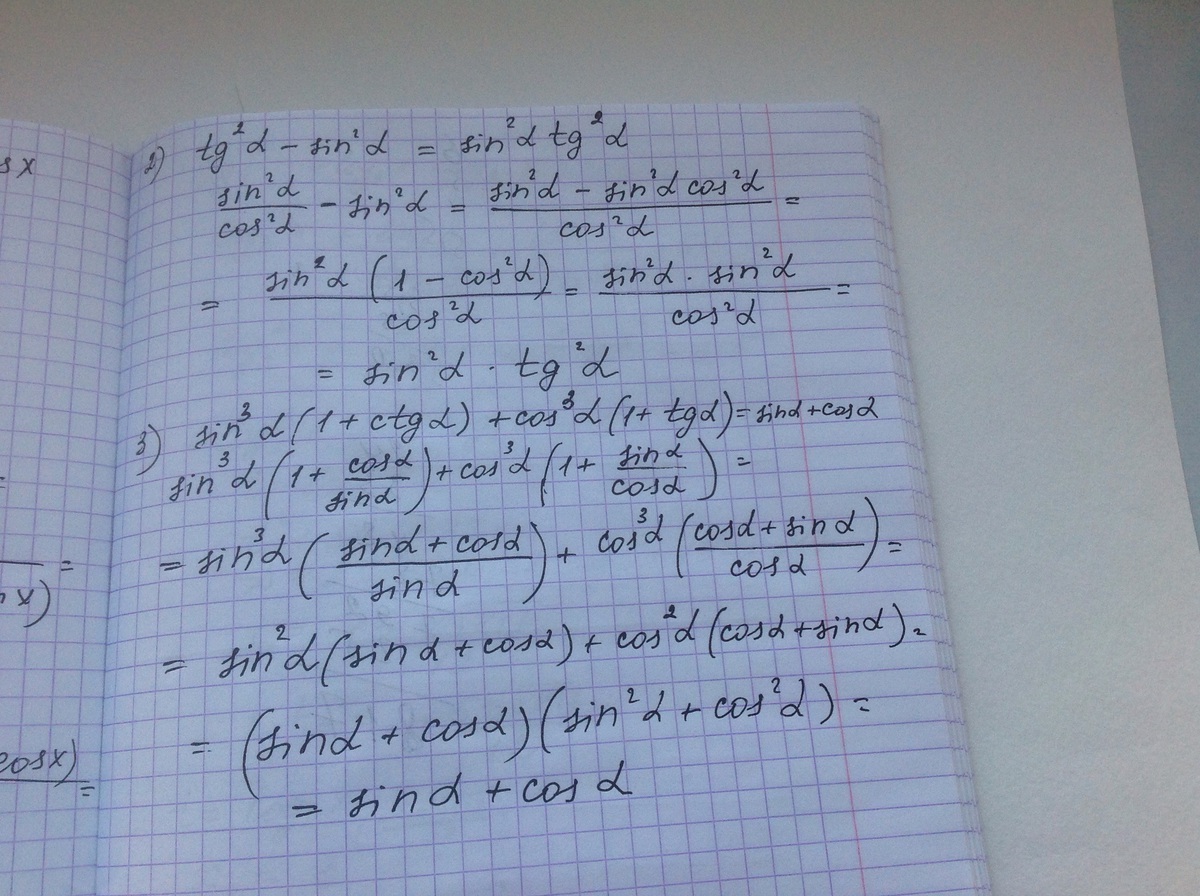 2) tg²α - sin²α = sin²α tg²α
sin²α/cos²α - sin²α = (sin²α - sin²α cos²α)/cos²α =
= sin²α (1 - cos²α)/cos²α = sin²α · sin²α/cos²α =
= sin²α · tg²α
3) sin³α (1 + ctgα) + cos³α (1 + tgα) = sinα + cosα
sin³α (1 + cosα/sinα) + cos³α (1 + sinα/cosα) =
= sin³α ((sinα + cosα)/sinα) + cos³α ((cosα + sinα)/cosα) =
= sin²α (sinα + cosα) + cos²α (cosα + sinα) =
= (sinα + cosα)(sin²α + cos²α) =
= sinα + cosα
x
=
x)
cosx)
=